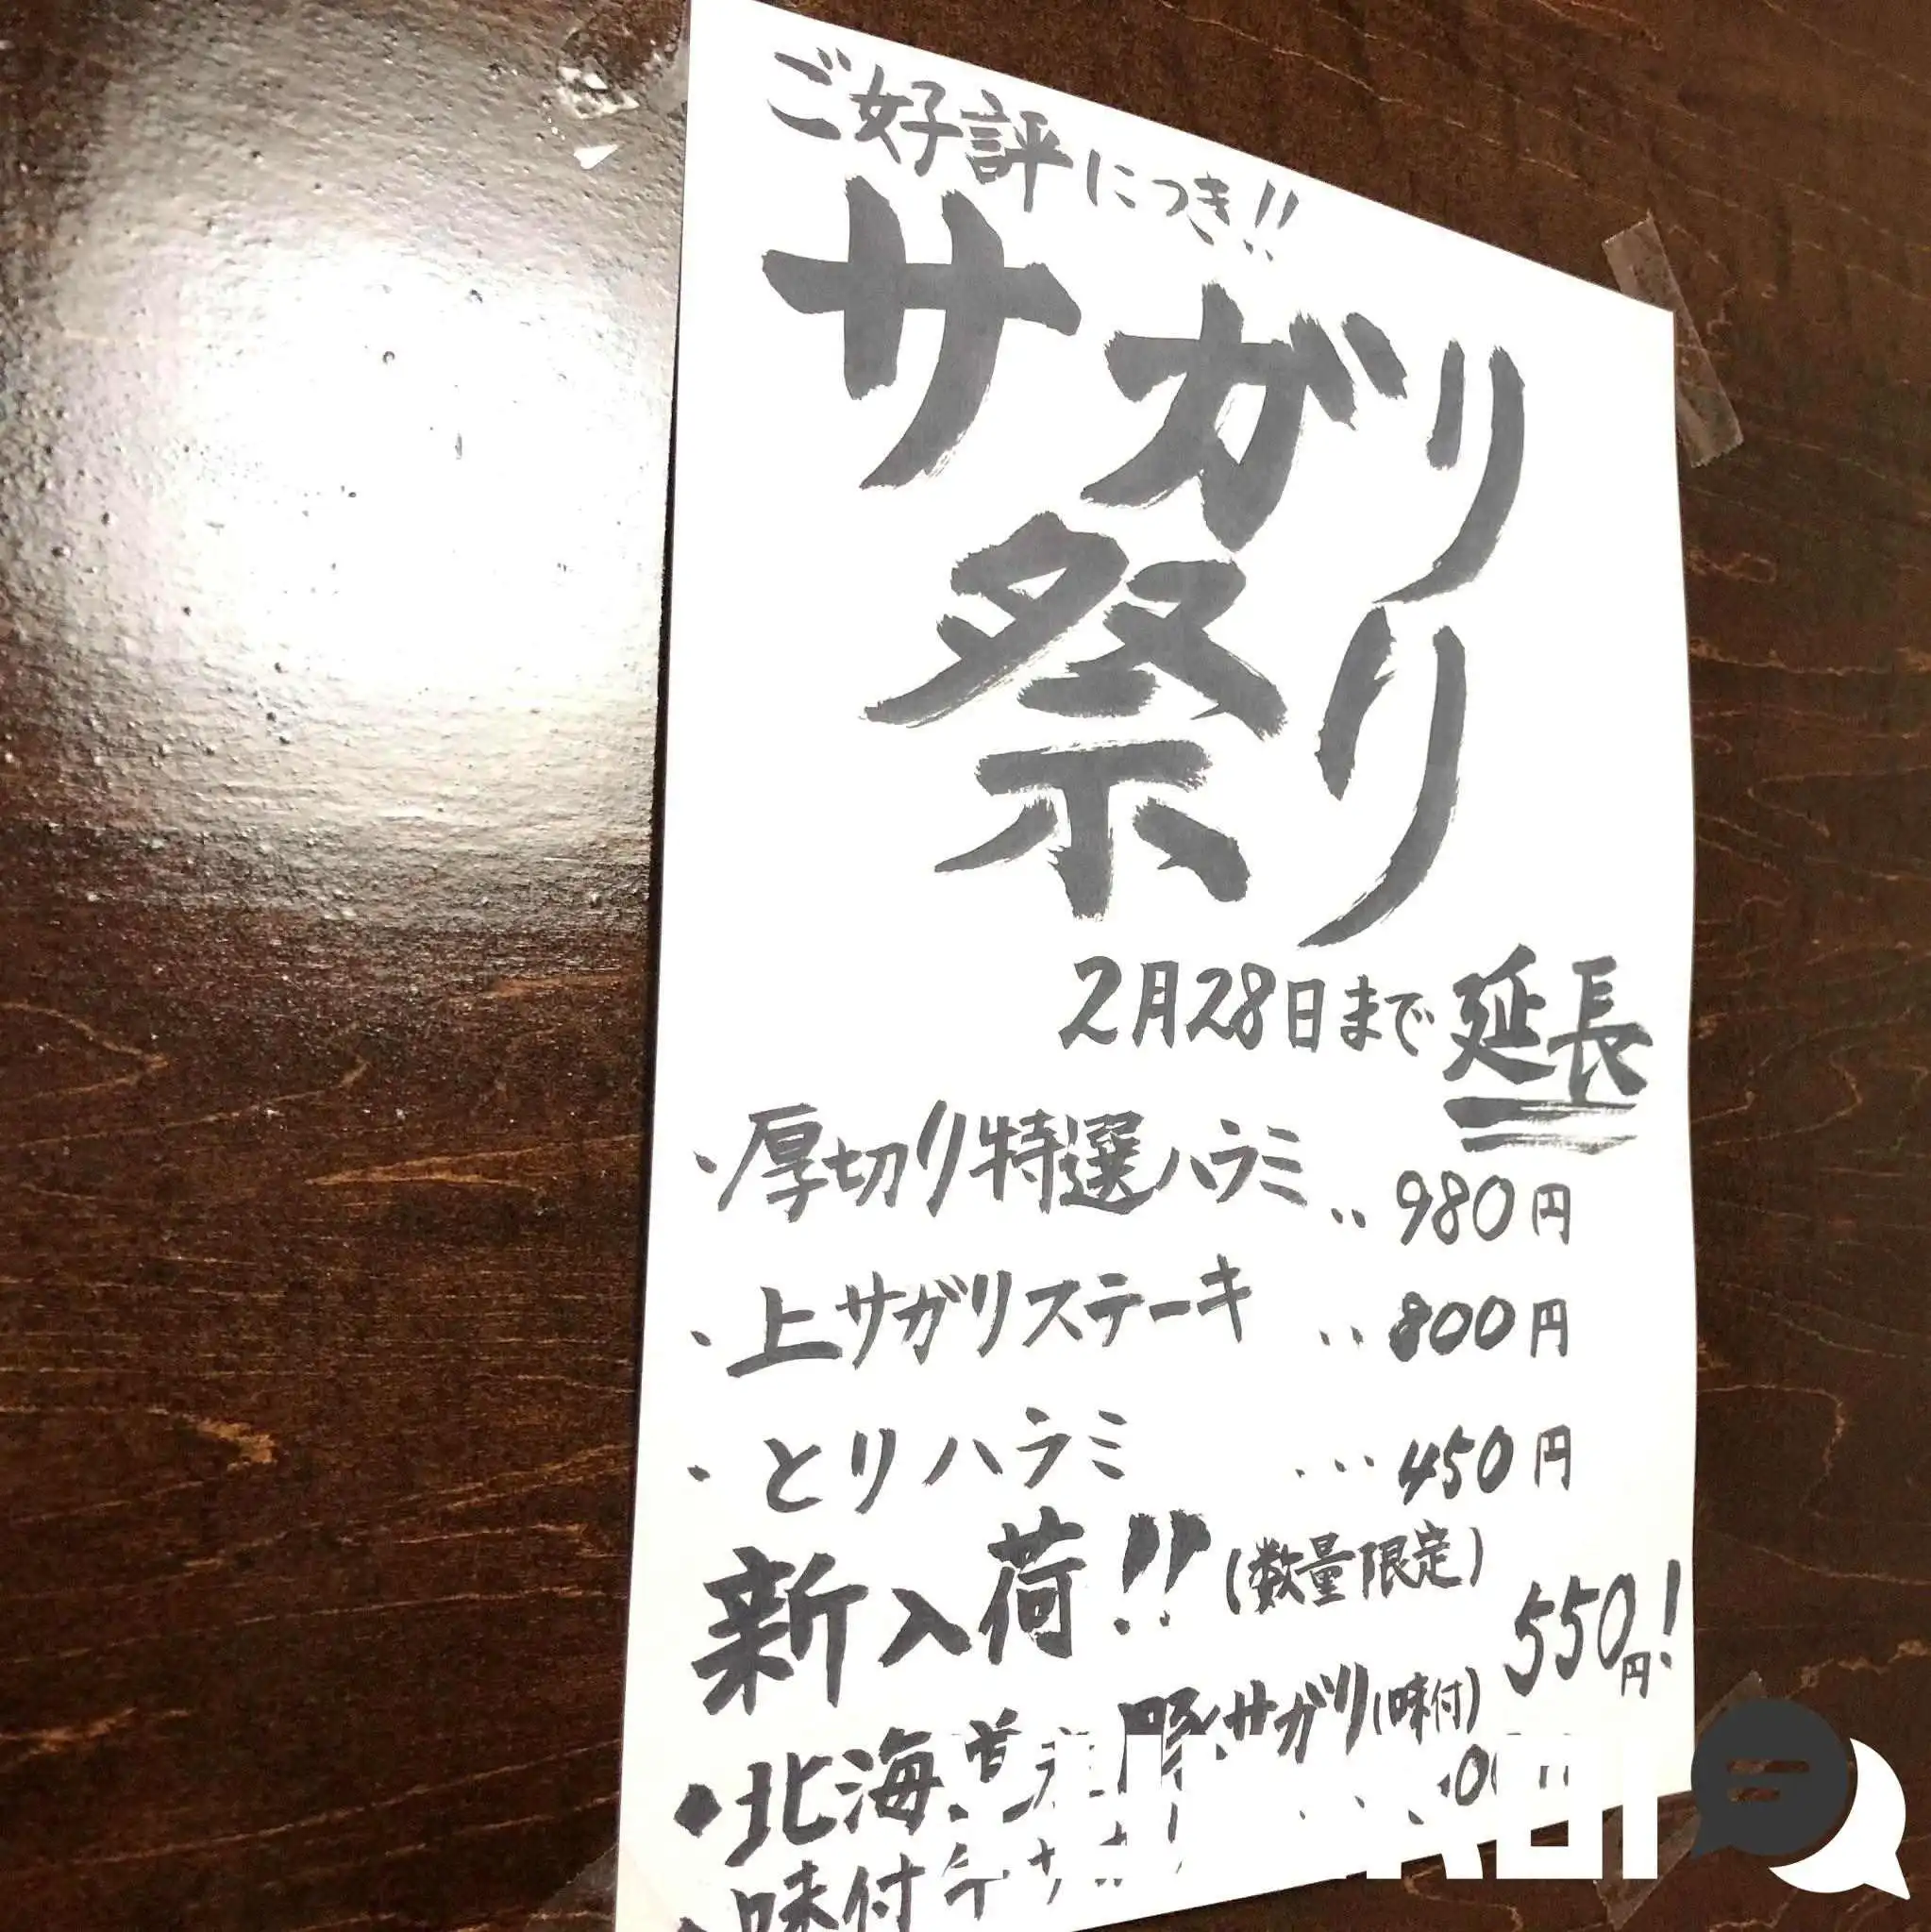 ご好評につき!!
サガリ
祭り
2月28日まで延長
・厚切り特選ハラミ‥980円
・上サガリステーキ‥800円
・とりハラミ…450円
新入荷!!(数量限定)
・北海道産豚サガリ(味付)550円!
・味付牛サガリ